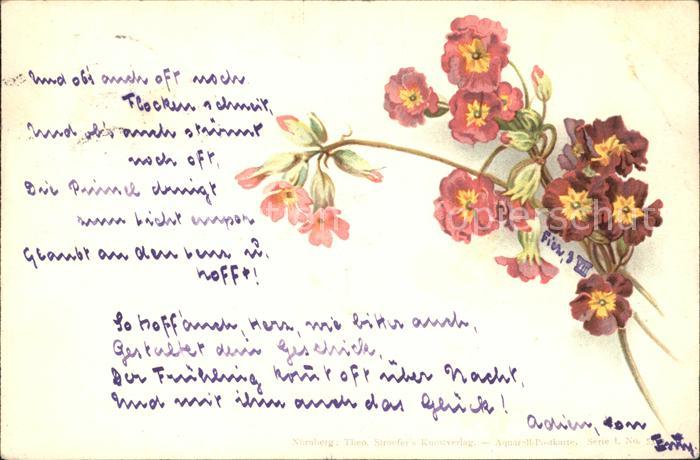 Und ob's auch oft noch
Flocken schneit,
Und ob's auch stürmt
noch oft,
Die Primel dringt
zum Licht empor
Glaubt an den Lenz u.
hofft!
So hoff auch, Herz, wie bitter auch,
Gestaltet dein Geschick,
Der Frühling kom̄t oft über Nacht,
Und mit ihm auch das Glück!
Adieu, von
Nürnberg: Theo. Stroefer's Kunstverlag. — Aquarell-Postkarte, Serie I, No.